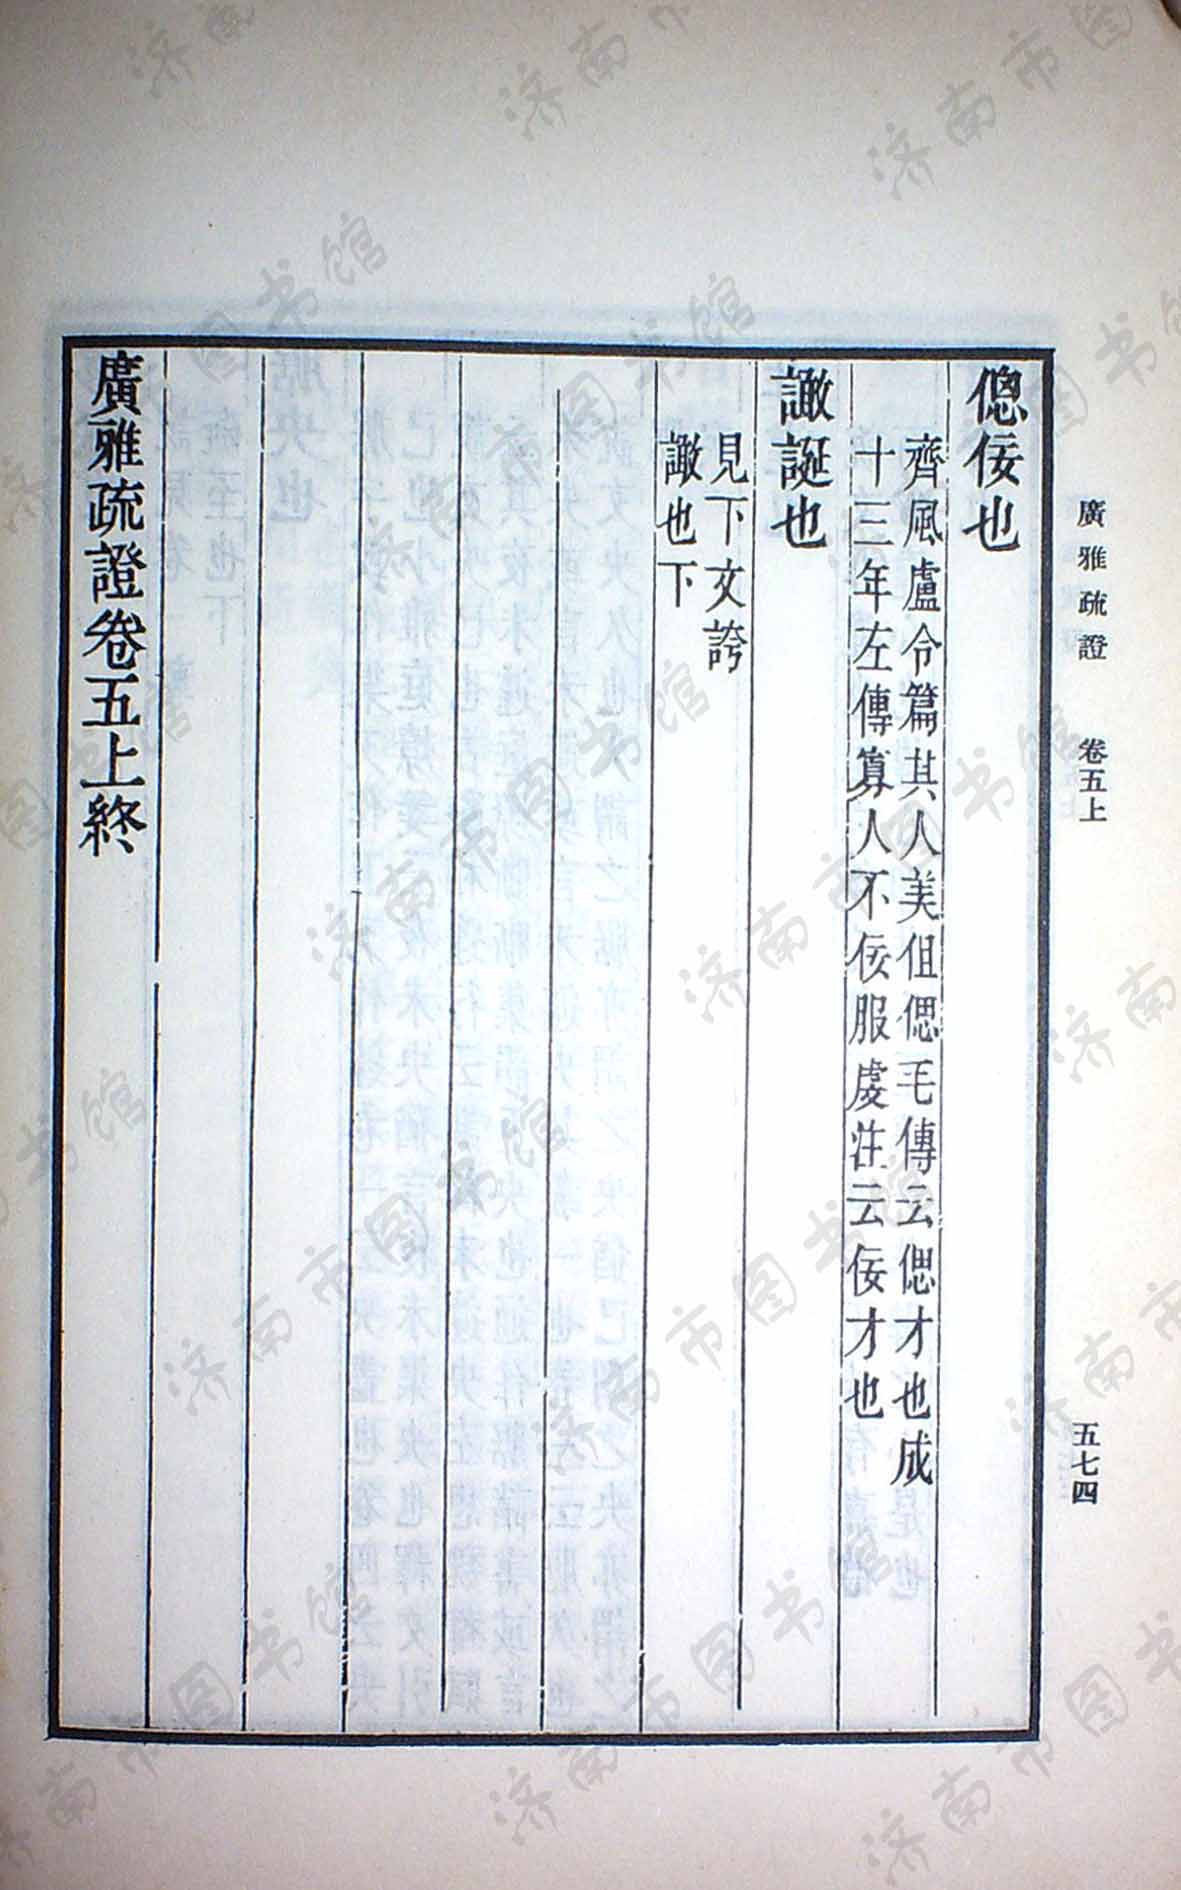 廣雅疏證 卷五上 五七四
偲佞也
齊風盧令篇其人美伹偲毛傳云偲才也成
十三年左傳寡人不佞服虔注云佞才也
譀誕也
見下文誇
譀也下
廣雅疏證卷五上終
济南市图书馆